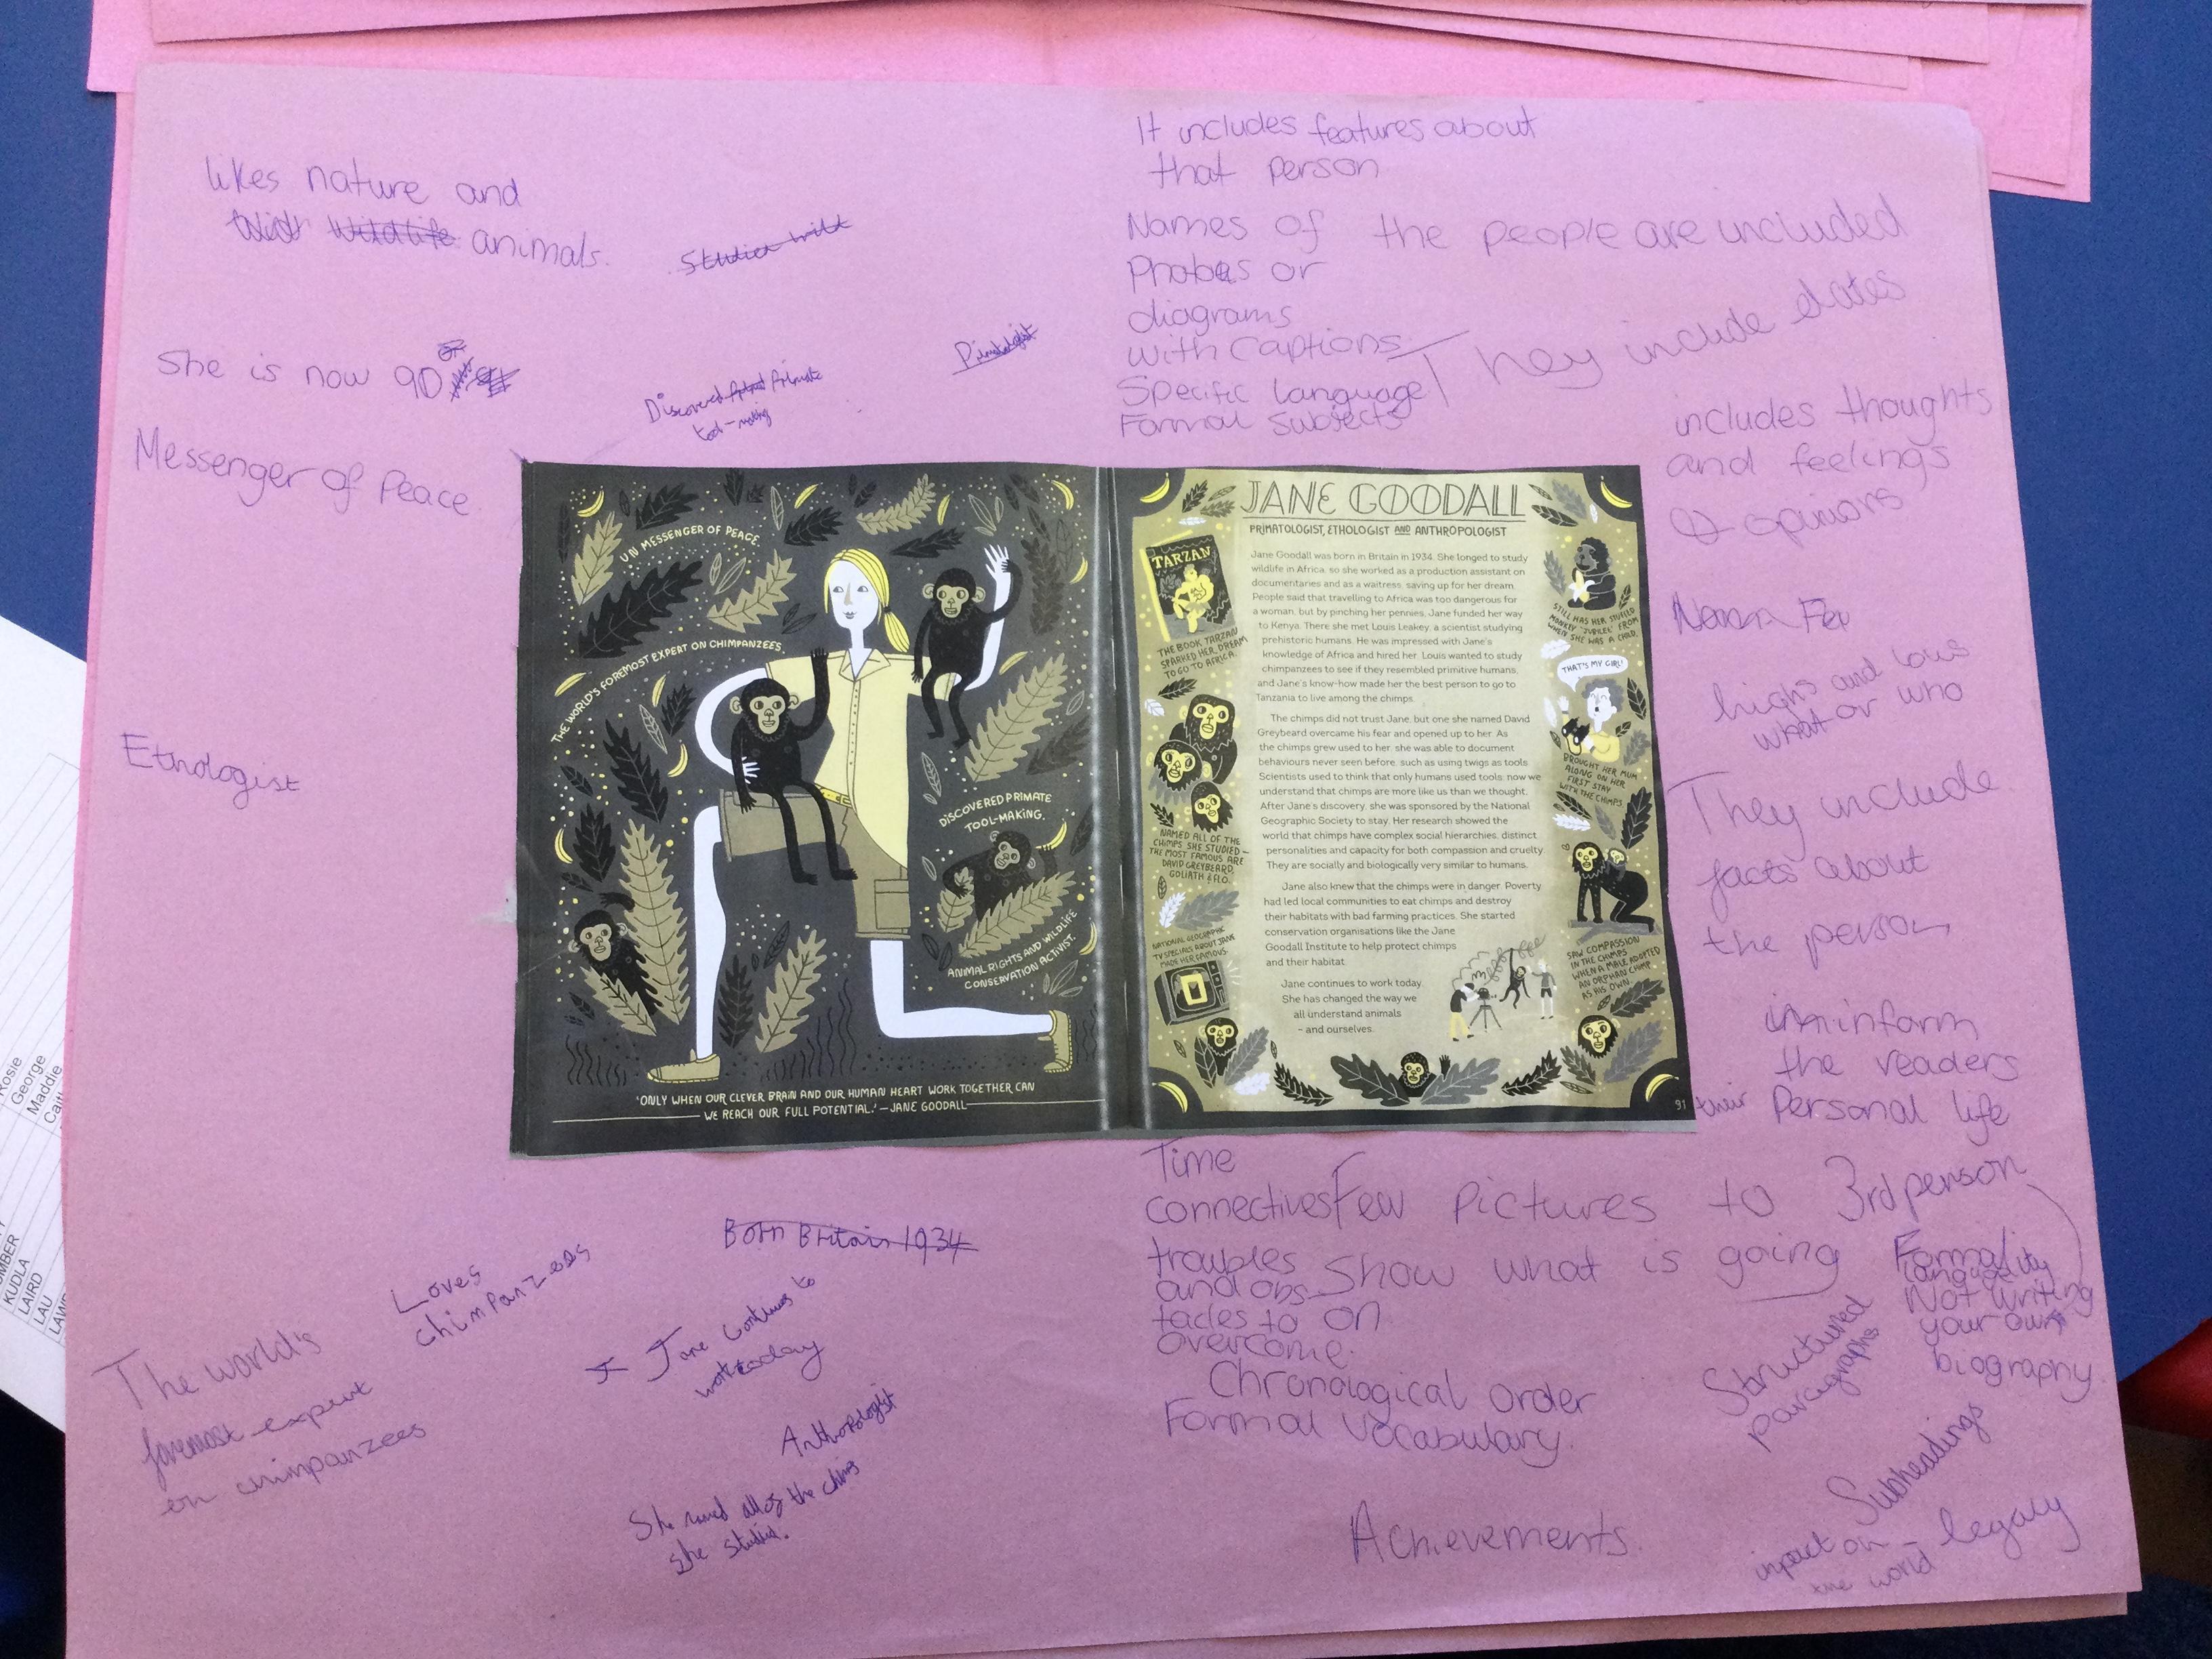 likes nature and
animals.
She is now 90
Discovered Primate
tool-making
Primatologist
Messenger of Peace
Ethologist
It includes features about
that person
Names of the people are included
Photos or
diagrams
with captions
Specific language
Formal subjects
They include dates
includes thoughts
and feelings
opinions
highs and lows
what or who
They include
facts about
the person
inform
the readers
their Personal life
UN MESSENGER OF PEACE.
THE WORLD'S FOREMOST EXPERT ON CHIMPANZEES.
DISCOVERED PRIMATE
TOOL-MAKING.
ANIMAL RIGHTS AND WILDLIFE
CONSERVATION ACTIVIST.
'ONLY WHEN OUR CLEVER BRAIN AND OUR HUMAN HEART WORK TOGETHER CAN
WE REACH OUR FULL POTENTIAL.' – JANE GOODALL
JANE GOODALL
PRIMATOLOGIST, ETHOLOGIST AND ANTHROPOLOGIST
Jane Goodall was born in Britain in 1934. She longed to study
wildlife in Africa, so she worked as a production assistant on
documentaries and as a waitress, saving up for her dream.
People said that travelling to Africa was too dangerous for
a woman, but by pinching her pennies, Jane funded her way
to Kenya. There she met Louis Leakey, a scientist studying
prehistoric humans. He was impressed with Jane's
knowledge of Africa and hired her. Louis wanted to study
chimpanzees to see if they resembled primitive humans,
and Jane's know-how made her the best person to go to
Tanzania to live among the chimps.
The chimps did not trust Jane, but one she named David
Greybeard overcame his fear and opened up to her. As
the chimps grew used to her, she was able to document
behaviours never seen before, such as using twigs as tools.
Scientists used to think that only humans used tools; now we
understand that chimps are more like us than we thought.
After Jane's discovery, she was sponsored by the National
Geographic Society to stay. Her research showed the
world that chimps have complex social hierarchies, distinct
personalities and capacity for both compassion and cruelty.
They are socially and biologically very similar to humans.
Jane also knew that the chimps were in danger. Poverty
had led local communities to eat chimps and destroy
their habitats with bad farming practices. She started
conservation organisations like the Jane
Goodall Institute to help protect chimps
and their habitat.
Jane continues to work today.
She has changed the way we
all understand animals
– and ourselves.
TARZAN
THE BOOK TARZAN
SPARKED HER DREAM
TO GO TO AFRICA.
NAMED ALL OF THE
CHIMPS SHE STUDIED –
THE MOST FAMOUS ARE
DAVID GREYBEARD,
GOLIATH & FLO.
NATIONAL GEOGRAPHIC
TV SPECIALS ABOUT JANE
MADE HER FAMOUS.
STILL HAS HER STUFFED
MONKEY "JUBILEE" FROM
WHEN SHE WAS A CHILD.
THAT'S MY GIRL!
BROUGHT HER MUM
ALONG ON HER
FIRST STAY
WITH THE CHIMPS.
SAW COMPASSION
IN THE CHIMPS
WHEN A MALE ADOPTED
AN ORPHAN CHIMP
AS HIS OWN.
91
Born Britain 1934
Loves
chimpanzees
Jane continues to
work today
The world's
foremost expert
on chimpanzees
Anthropologist
She named all of the chimps
she studied.
Time
connectives
troubles
and obs
tacles to
overcome.
Few pictures to
show what is going
on
3rd person
Formal
Not writing
your own
biography
Chronological order
Formal vocabulary.
Structured
paragraphs
Subheadings
Achievements.
impact on – legacy
the world
Rosie
George
Maddie
KUDLA
LAIRD
LAU